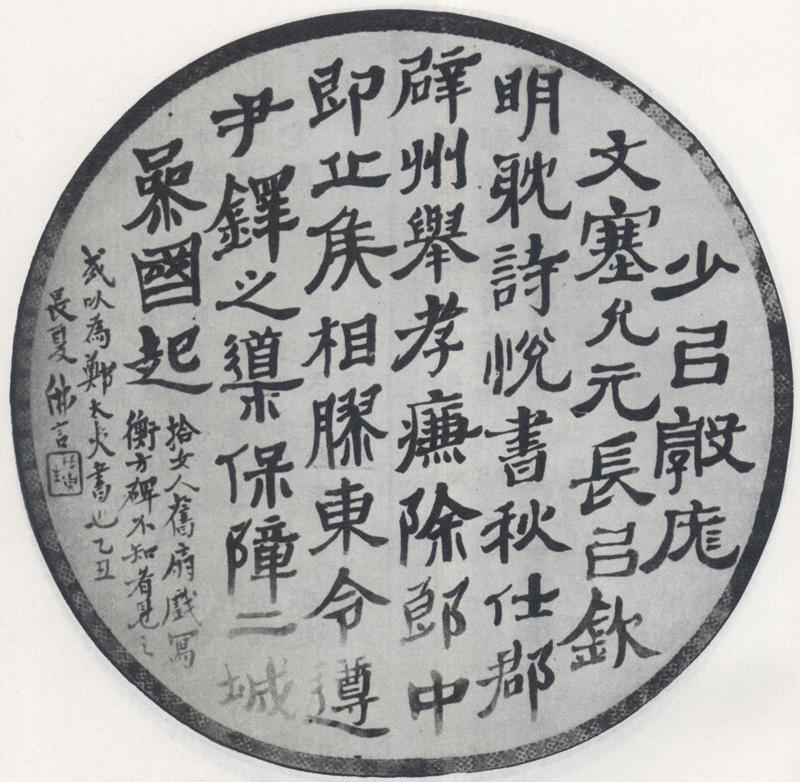 少㠯敦庬
文塞允元長㠯欽
明耽詩悅書秋仕郡
辟州舉孝廉除郎中
即丘侯相膠東令遵
尹鐸之導保障二城
曑國起
拾女人舊扇戲寫
衡方碑不知者見之
或以為鄭太夷書也乙丑
長夏佛言